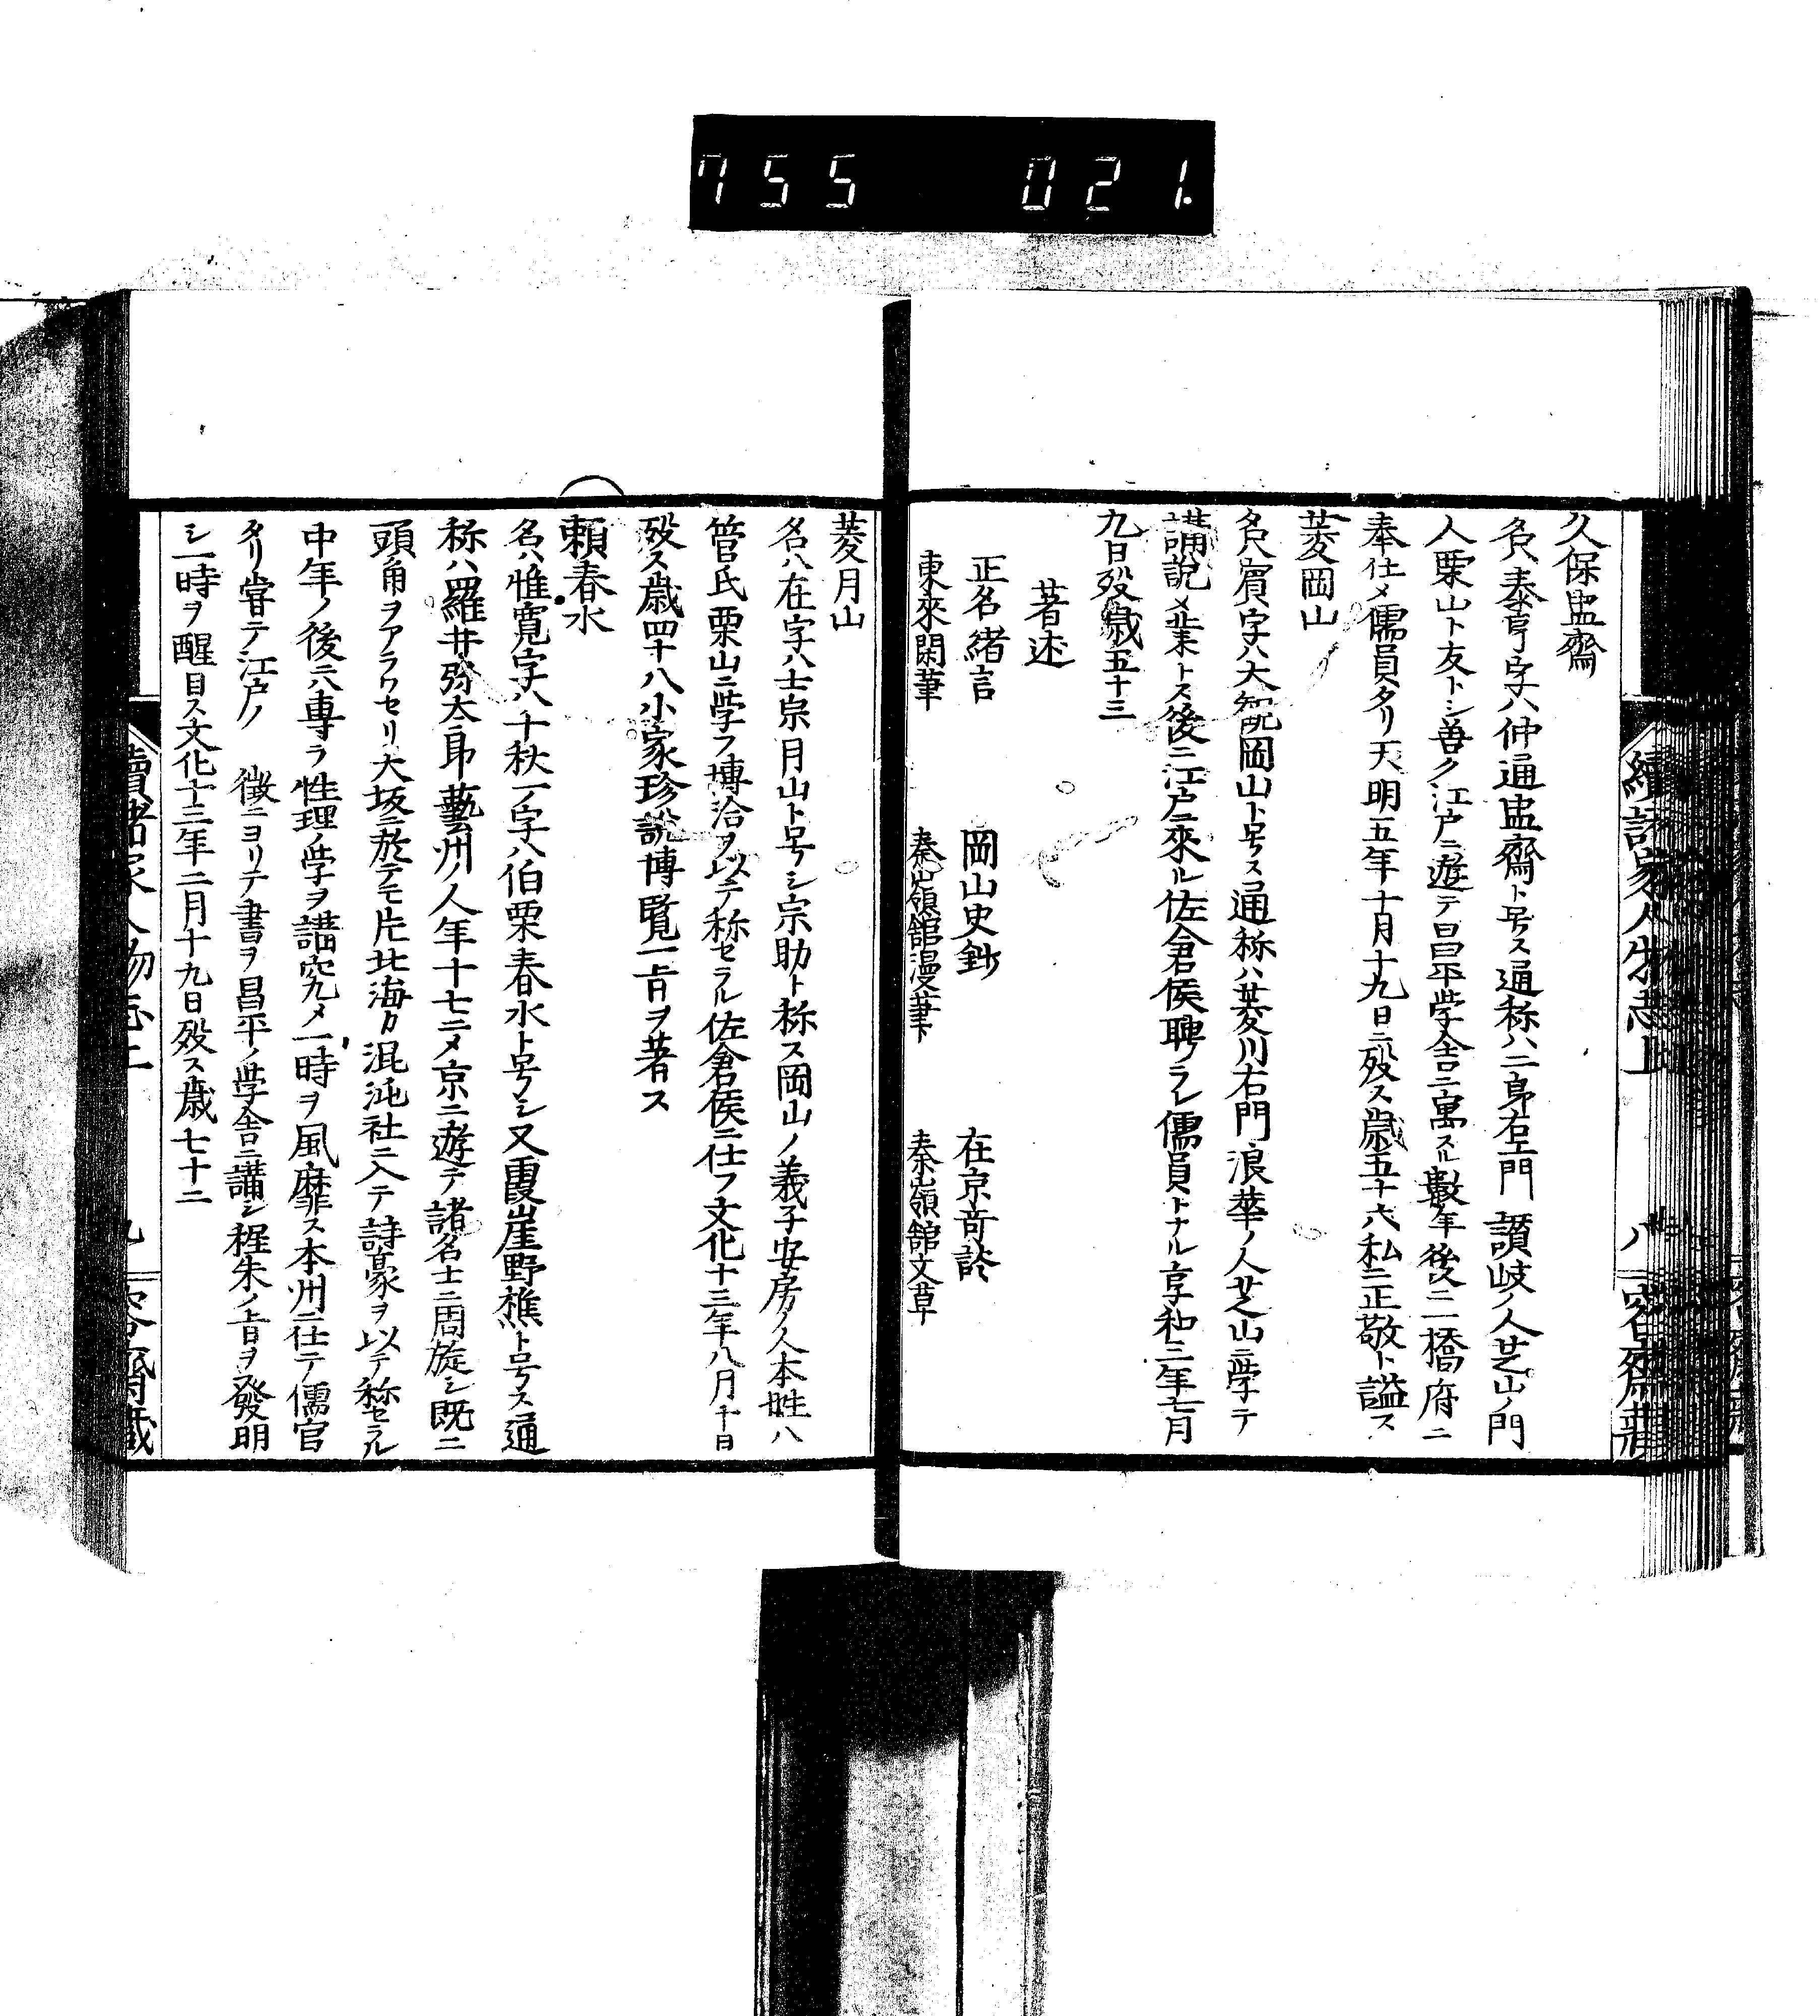 755 021.
續諸家人物志上
八
容齋藏
久保盅齋
名ハ泰亨字ハ仲通盅齋ト号ス通称ハ二郎右エ門讃岐ノ人芝山ノ門
人栗山ト友トシ善ク江戸ニ遊テ昌平学舎ニ寓スル數年後二橋府ニ
奉仕シテ儒員タリ天明五年十月十九日ニ歿ス歳五十六私ニ正敬ト謚ス
菱岡山
名ハ賓字ハ大觀岡山ト号ス通称ハ菱川右門浪華ノ人芝山ニ学テ
講説ヲ業トス後ニ江戸ニ來ル佐倉侯聘ラレ儒員トナル享和三年七月
九日歿歳五十三
著述
正名緒言 岡山史鈔 在京奇談
東來閑筆 秦嶺館漫筆 秦嶺館文草
菱月山
名ハ在字ハ士宗月山ト号シ宗助ト称ス岡山ノ義子安房ノ人本姓ハ
管氏栗山ニ学フ博洽ヲ以テ称セラル佐倉侯ニ仕フ文化十三年八月十日
歿ス歳四十八小家珍説博覧一㫖ヲ著ス
頼春水
名ハ惟寛字ハ千秋一ノ字ハ伯栗春水ト号シ又霞崖野樵ト号ス通
称ハ羅井弥太郎藝州ノ人年十七ニメ京ニ遊テ諸名士ニ周旋シ既ニ
頭角ヲアラワセリ大坂ニ於テモ片北海カ混沌社ニ入テ詩豪ヲ以テ称セラル
中年ノ後ニ六専ラ性理ノ学ヲ講究メ一時ヲ風靡ス本州ニ仕テ儒官
タリ嘗テ江戸ノ 徴ニヨリテ書ヲ昌平ノ学舎ニ講シ程朱ノ㫖ヲ發明
シ一時ヲ醒目ス文化十三年二月十九日歿ス歳七十二
續諸家人物志上
九
容齋藏